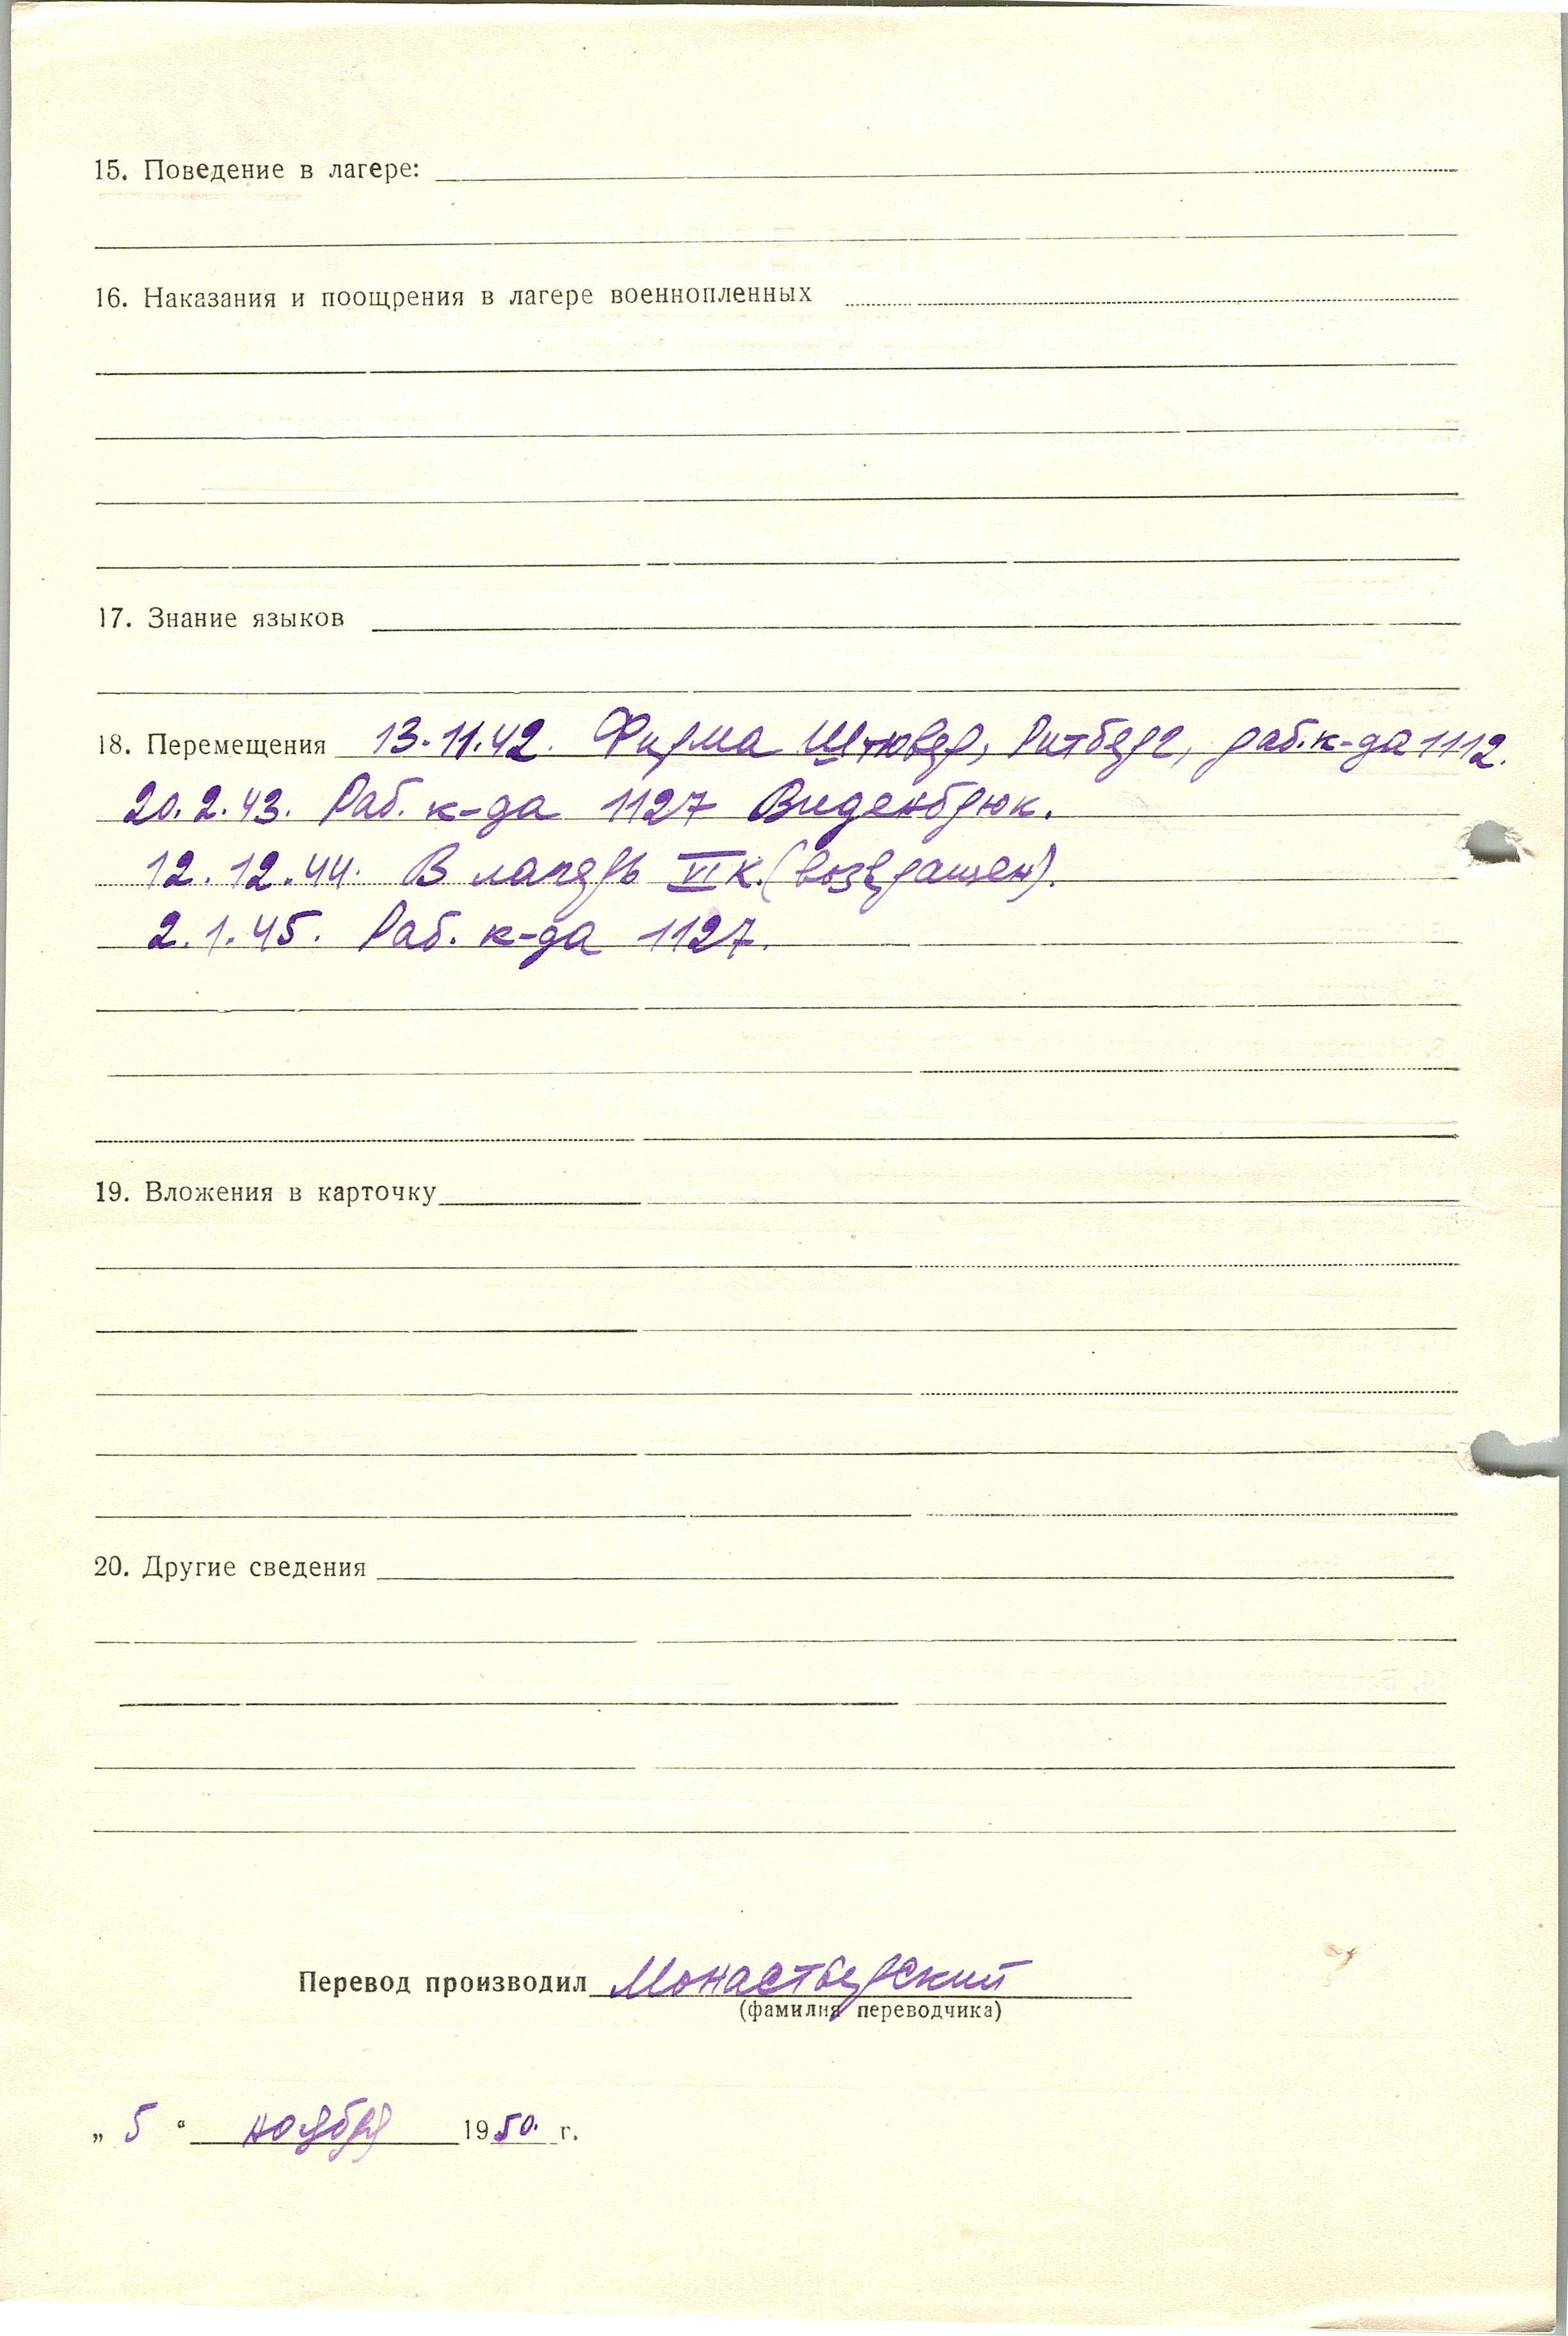 15. Поведение в лагере:
16. Наказания и поощрения в лагере военнопленных
17. Знание языков
18. Перемещения 13.11.42. Фирма Штювер, Ритберг, раб.к-да 1112.
20.2.43. Раб. к-да 1127 Виденбрюк.
12.12.44. В лагерь VI к. (возвращен).
2.1.45. Раб. к-да 1127.
19. Вложения в карточку
20. Другие сведения
Перевод производил Монастверский
(фамилия переводчика)
„ 5 “ ноября 1950. г.